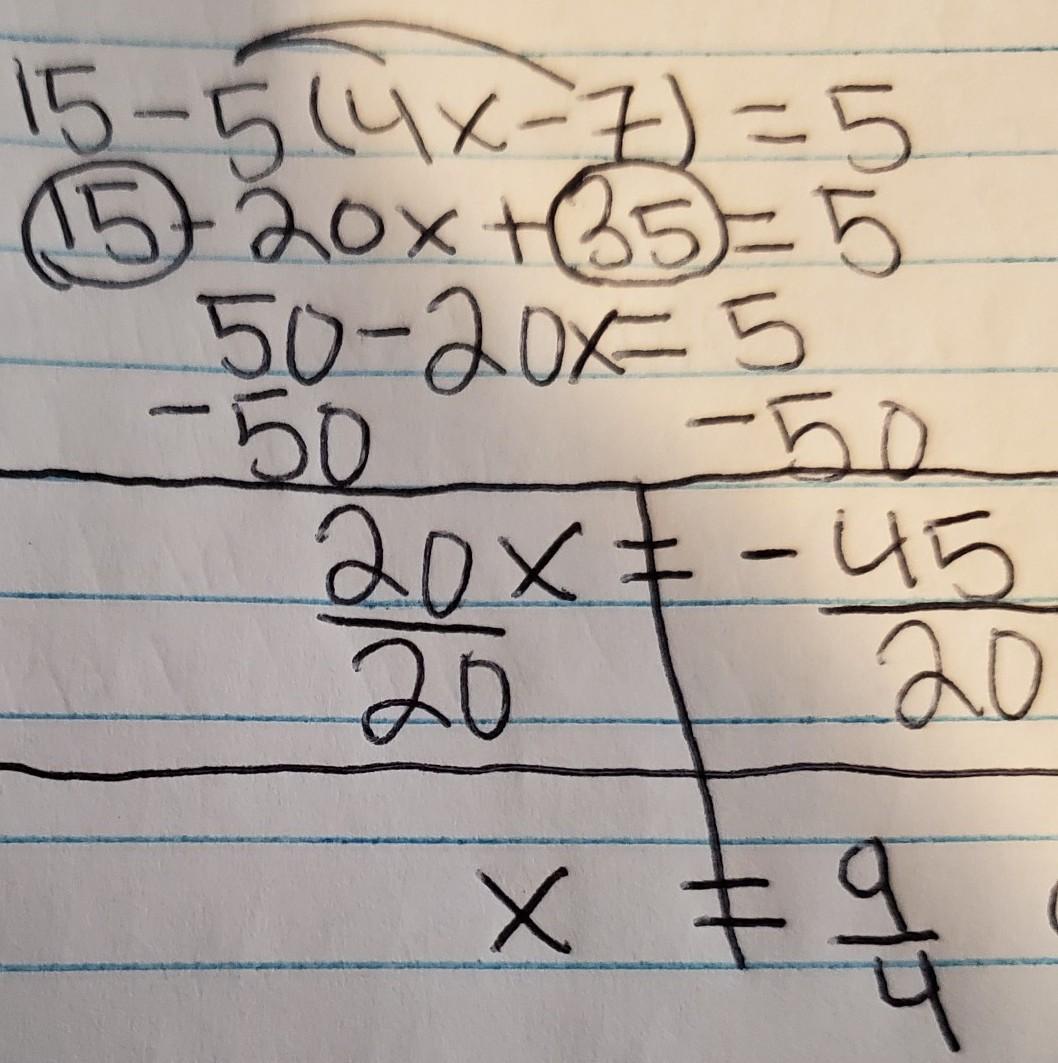 15 - 5(4x - 7) = 5
15 - 20x + 35 = 5
50 - 20x = 5
-50 -50
20x = -45
20 20
x = 9
4